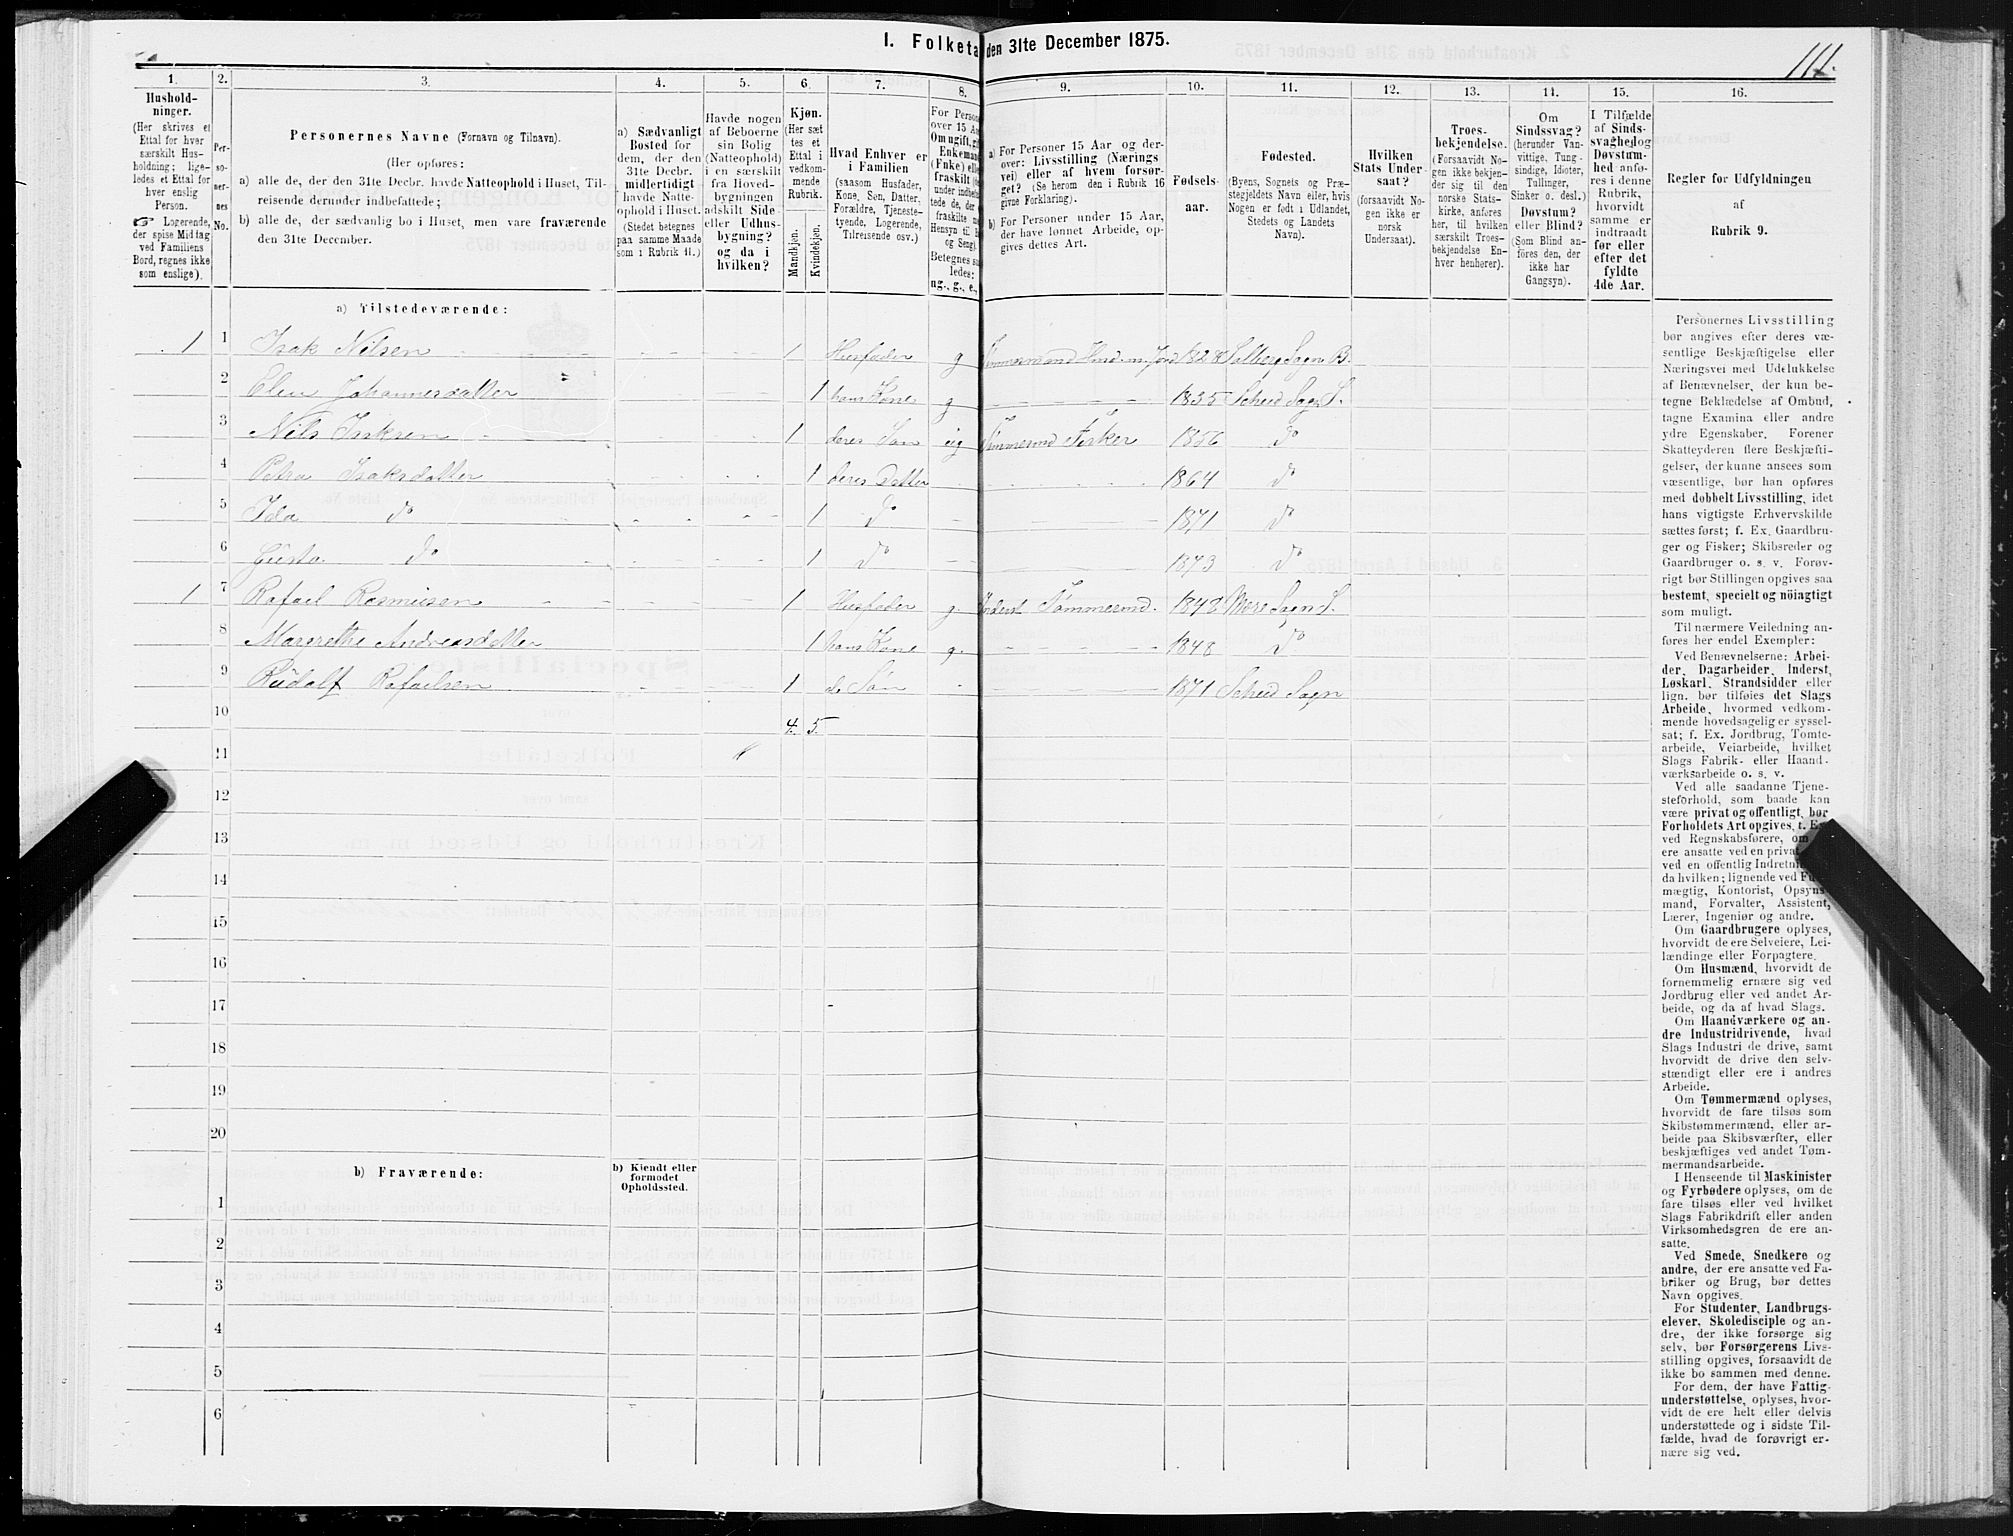 I. Folketa den 31te December 1875.
111.
1.
2.
3.
4.
5.
6.
7.
8.
9.
10.
11.
12.
13.
14.
15.
16.
Hushold-
ninger.
(Her skrives et
Ettal for hver
særskilt Hus-
holdning; lige-
ledes et Ettal for
hver enslig
Person.
☞ Logerende,
der spise Middag
ved Familiens
Bord, regnes ikke
som enslige).
Per-
so-
ner-
nes
No.
Personernes Navne (Fornavn og Tilnavn).
(Her opføres:
a) alle de, der den 31te Decbr. havde Natteophold i Huset, Til-
reisende derunder indbefattede;
b) alle de, der sædvanlig bo i Huset, men vare fraværende
den 31te December.
a) Sædvanligt
Bosted for
dem, der den
31te Decbr.
midlertidigt
havde Natte-
ophold i Huset.
(Stedet betegnes
paa samme Maade
som i Rubrik 11.)
Havde nogen
af Beboerne
sin Bolig
(Natteophold)
i en særskilt
fra Hoved-
bygningen
adskilt Side-
eller Udhus-
bygning?
og da i
hvilken?
Kjøn.
(Her sæt-
tes et
Ettal i
vedkom-
mende
Rubrik.
Mandkjøn.
Kvindekjøn.
Hvad Enhver er
i Familien
(saasom Husfader,
Kone, Søn, Datter,
Forældre, Tjeneste-
tyende, Logerende,
Tilreisende osv.)
For Person
over 15 Aa
Om ugift, gi
Enkemand
(Enke) elle
fraskilt
under indbefat-
tede de, der
fraskilte
Hensyn til B
og Seng).
Betegnes saa
ledes:
ug., g., e.,
a) For Personer 15 Aar og der-
over: Livsstilling (Nærings
vei) eller af hvem forsør-
get? (Se herom den i Rubrik 16
givne Forklaring).
b) For Personer under 15 Aar,
der have lønnet Arbeide, op-
gives dettes Art.
Fødsels-
aar.
Fødested.
(Byens, Sognets og Præ-
stegjeldets Navn eller, hvis
Nogen er født i Udlandet,
Stedets og Landets
Navn).
Hvilken
Stats Under-
saat?
(forsaavidt No-
gen ikke er
norsk
Undersaat).
Troes-
bekjendelse.
(Forsaavidt No-
gen ikke bekjen-
der sig til den
norske Stats-
kirke, anføres
her, til hvilken
særskilt Troes-
bekjendelse En-
hver henhører).
Om
Sindssvag?
(herunder Van-
vittige, Tung-
sindige, Idioter,
Tullinger,
Sinker o. desl.)
Døvstum?
eller Blind?
(Som Blind an-
føres den, der
ikke har
Gangsyn).
I Tilfælde
af Sinds-
svaghed og
Døvstum-
hed anfø-
res i denne
Rubrik,
hvorvidt
samme er
indtraadt
før eller
efter det
fyldte
4de Aar.
Regler for Udfyldningen
af
Rubrik 9.
a) Tilstedeværende:
1 1 Isak Nilsen 1 Husfader g Tømmermand Husm. m. Jord 1828 Solberg Sogn B.
2 Elen Johannesdatter 1 hans Kone g 1835 Scheid Sogn S.
3 Nils Isaksen 1 deres Søn ug Tømmermd Fisker 1856 do
4 Petra Isaksdatter 1 deres Datter 1864 do
5 Ida do 1 do 1871 do
6 Gusta do 1 do 1873 do
1 7 Rafael Rasmussen 1 Husfader g. Inderst Tømmermd. 1848 Mære Sogn S.
8 Margrethe Andreasdatter 1 hans Kone g. 1848 do
9 Rudolf Rafaelsen 1 d. Søn 1871 Scheid Sogn
10 4. 5.
11
12
13
14
15
16
17
18
19
20
b) Fraværende:
b) Kjendt eller
formodet
Opholdssted.
1
2
3
4
5
6
Personernes Livsstilling
bør angives efter deres væ-
sentlige Beskjæftigelse eller
Næringsvei med Udelukkelse
af Benævnelser, der kun be-
tegne Beklædelse af Ombud,
tagne Examina eller andre
ydre Egenskaber. Forener
Skatteyderen flere Beskjæfti-
gelser, der kunne ansees som
væsentlige, bør han opføres
med dobbelt Livsstilling, idet
hans vigtigste Erhvervskilde
sættes først; f. Ex. Gaardbru-
ger og Fisker; Skibsreder og
Gaardbruger o. s. v. Forøv-
rigt bør Stillingen opgives saa
bestemt, specielt og nöiagtigt
som muligt.
Til nærmere Veiledning an-
føres her endel Exempler:
Ved Benævnelserne: Arbei-
der, Dagarbeider, Inderst,
Løskarl, Strandsidder eller
lign. bør tilføies det Slags
Arbeide, hvormed vedkom-
mende hovedsagelig er syssel-
sat; f. Ex. Jordbrug, Tomte-
arbeide, Veiarbeide, hvilket
Slags Fabrik- eller Haand-
værksarbeide o. s. v.
Ved alle saadanne Tjene-
steforhold, som baade kan
være privat og offentligt, bør
Forholdets Art opgives, t. E
ved Regnskabsførere, om
ere ansatte ved en privat
ved en offentlig Indretni
da hvilken; lignende ved Fu
mægtig, Kontorist, Opsyns
mand, Forvalter, Assistent,
Lærer, Ingeniør og andre.
Om Gaardbrugere oplyses,
hvorvidt de ere Selveiere, Lei-
lændinge eller Forpagtere.
Om Husmænd, hvorvidt de
fornemmelig ernære sig ved
Jordbrug eller ved andet Ar-
beide, og da af hvad Slags.
Om Haandværkere og an-
dre Industridrivende, hvad
Slags Industri de drive, samt
hvorvidt de drive den selv-
stændigt eller ere i andres
Arbeide.
Om Tømmermænd oplyses,
hvorvidt de fare tilsøs som
Skibstømmermænd, eller ar-
beide paa Skibsværfter, eller
beskjæftiges ved andet Tøm-
mermandsarbeide.
I Henseende til Maskinister
og Fyrbødere oplyses, om de
fare tilsøs eller ved hvilket
Slags Fabrikdrift eller anden
Virksomhedsgren de ere an-
satte.
Ved Smede, Snedkere og
andre, der ere ansatte ved Fa-
briker og Brug, bør dettes
Navn opgives.
For Studenter, Landbrugs-
elever, Skoledisciple og an-
dre, der ikke forsørge sig
selv, bør Forsørgerens Livs-
stilling opgives, forsaavidt de
ikke bo sammen med denne.
For dem, der have Fattig-
understøttelse, oplyses, hvor-
vidt de ere helt eller delvis
understøttede og i sidste Til-
fælde, hvad de forøvrigt er-
nære sig ved.